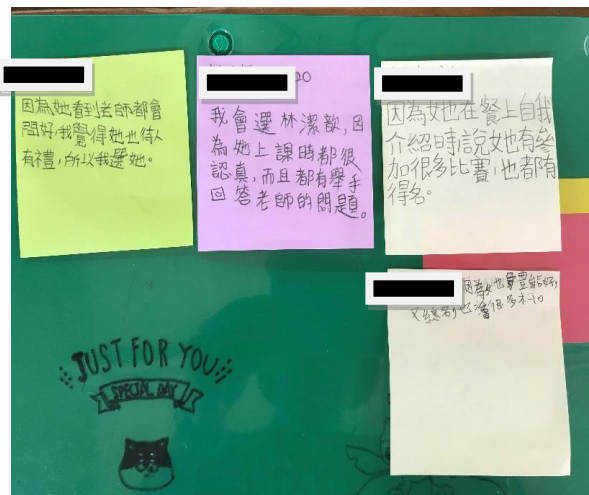 因為她看到老師都會
問好，我覺得她也待人
有禮，所以我選她。
20
我會選林潔歆，因
為她上課時都很
認真，而且都有舉手
回答老師的問題。
因為她也在餐上自我
介紹時說她有參
加很多比賽，也都有
得名。
因為她
很多
JUST FOR YOU
SPECIAL DAY